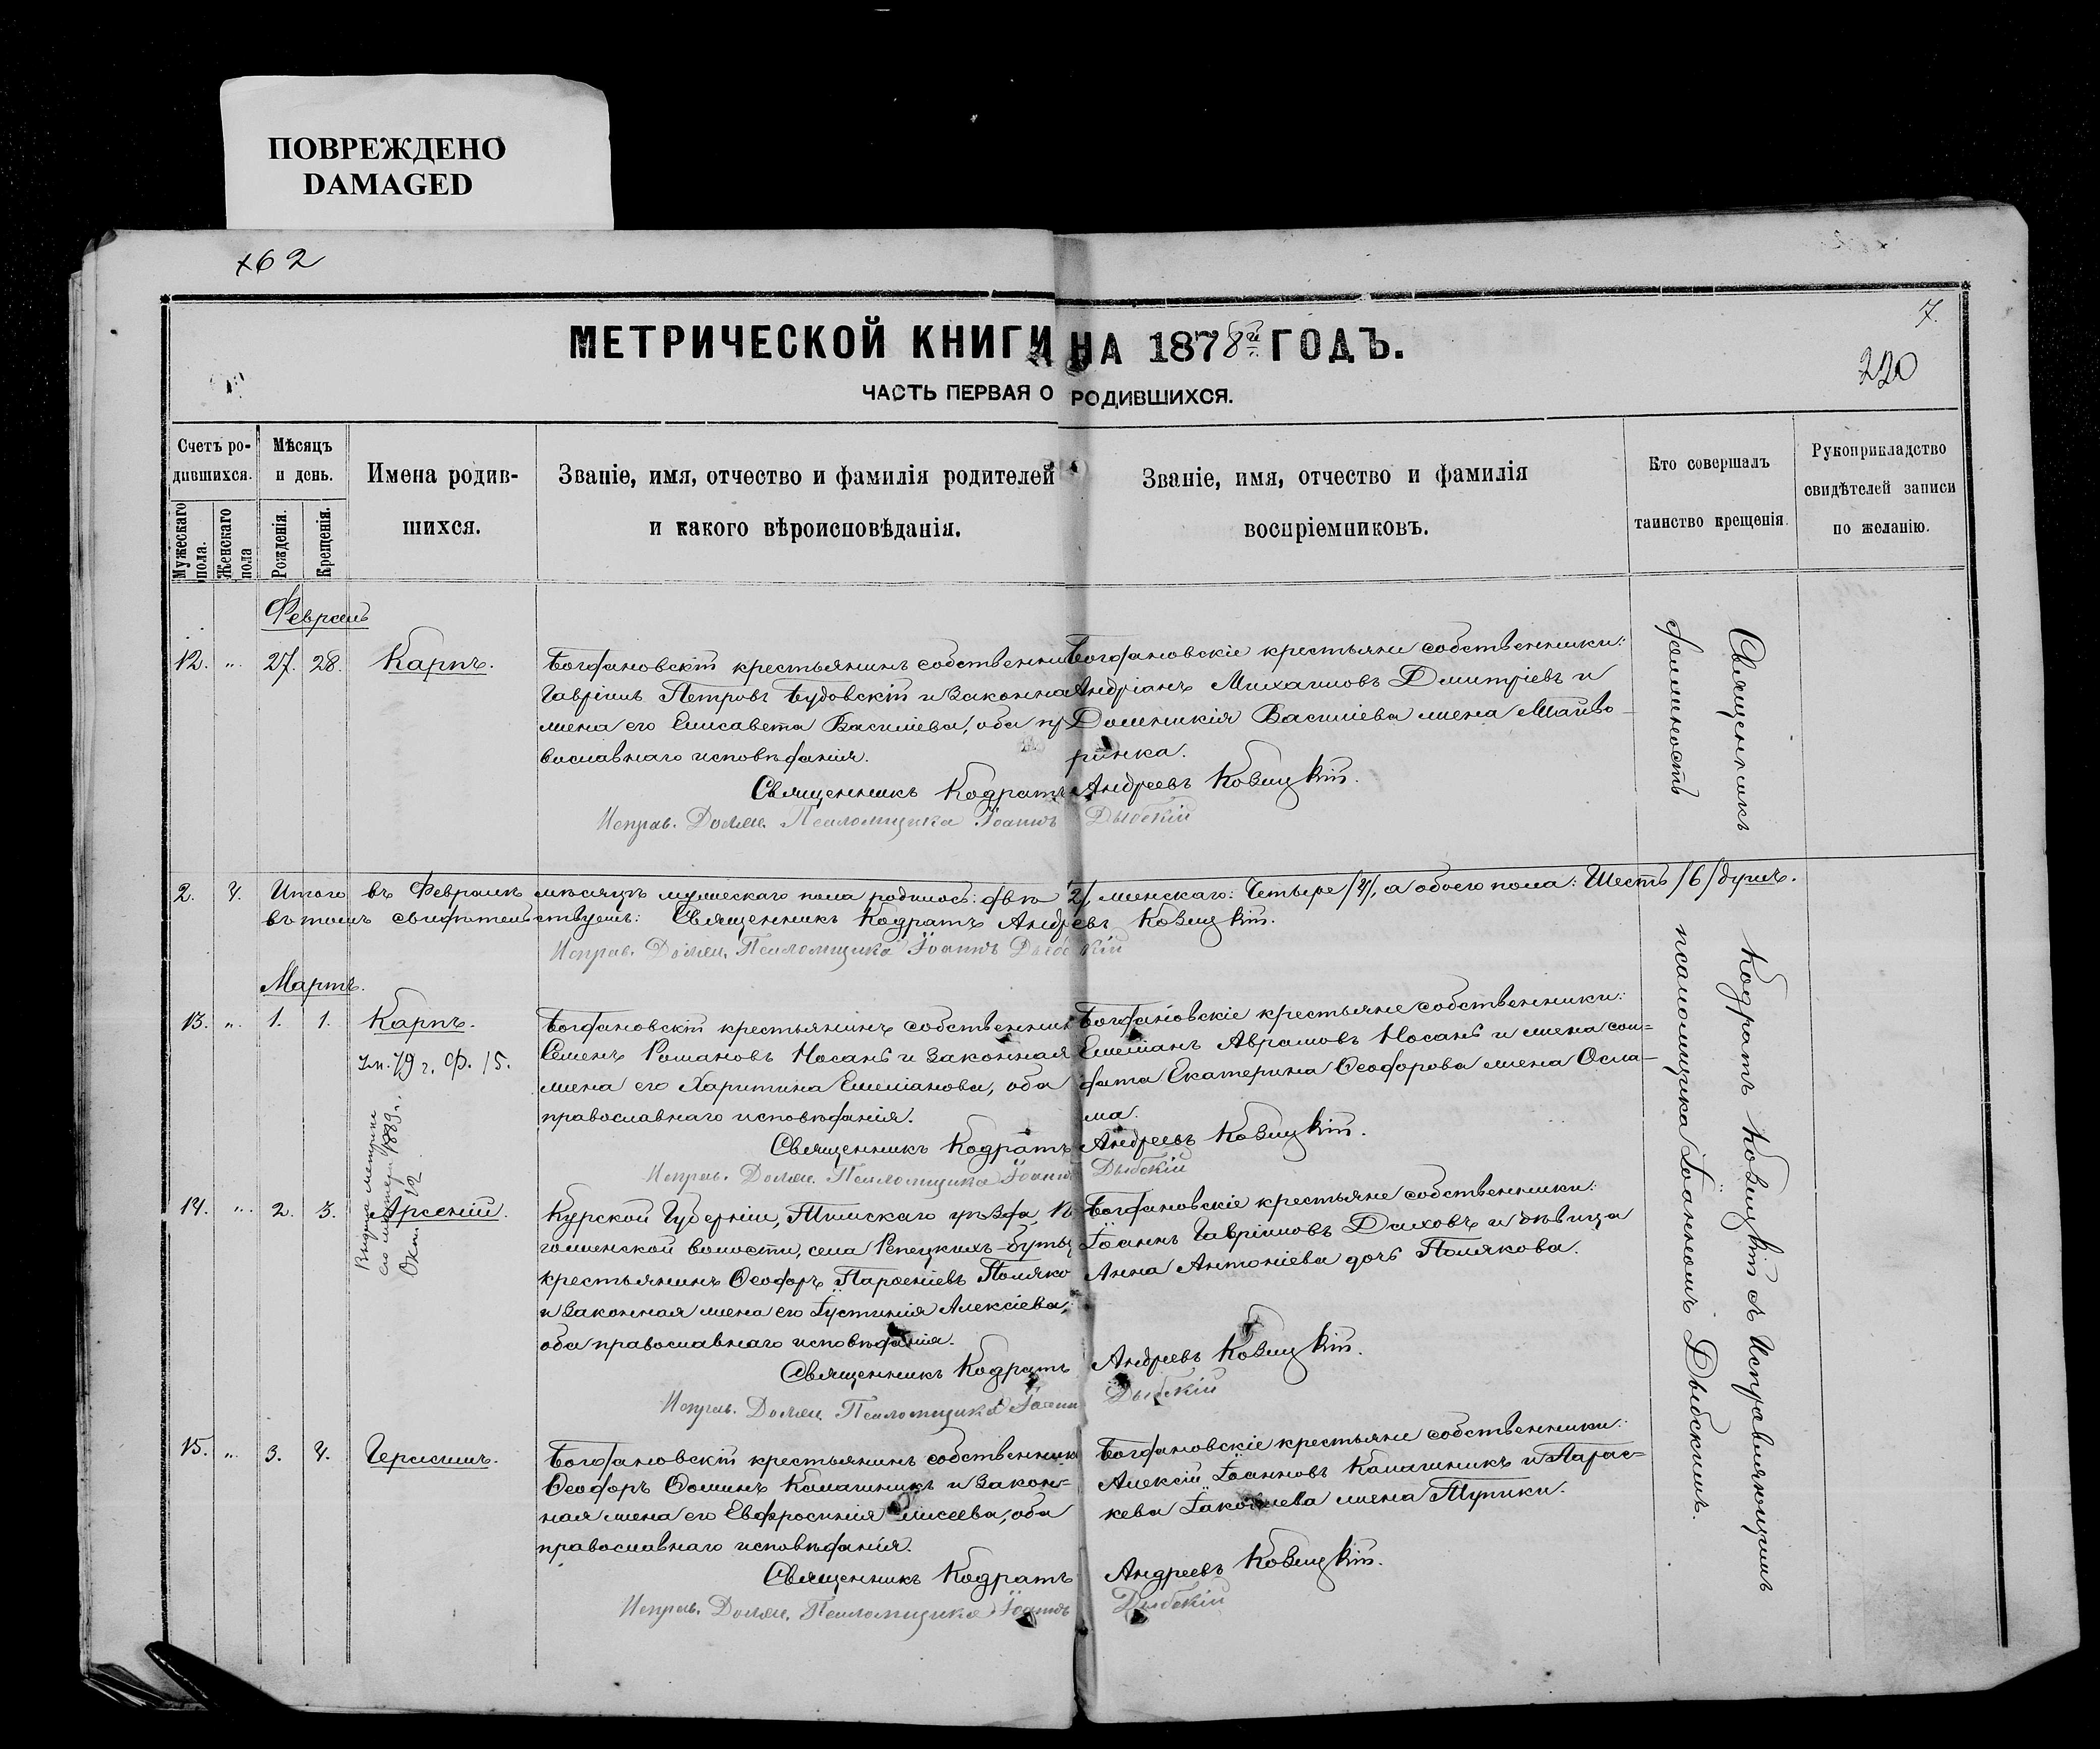 ПОВРЕЖДЕНО
DAMAGED
×62
7.
МЕТРИЧЕСКОЙ КНИГИ НА 1878й ГОДЪ.
220
ЧАСТЬ ПЕРВАЯ О РОДИВШИХСЯ.
Счетъ ро-
дившихся.
Мужескаго пола.
Женскаго пола
Мѣсяцъ
и день.
Рожденія.
Крещенія.
Имена родив-
шихся.
Званіе, имя, отчество и фамилія родителей
и какого вѣроисповѣданія.
Званіе, имя, отчество и фамилія
воспріемниковъ.
Кто совершалъ
таинство крещенія.
Рукоприкладство
свидѣтелей записи
по желанію.
Февраль
12. „ 27. 28. Карпъ.
Богдановскій крестьянинъ собственни
Гавріилъ Петровъ Будовскій и законна
жена его Елисавета Василіева, оба пр
вославнаго исповѣданія.
Богдановскіе крестьяне собственники:
Андріанъ Михаиловъ Дмитріевъ и
Домникія Василіева жена Майбо-
ринка.
Священникъ Кодратъ Андреевъ Ковицкій.
Исправ. Должн. Псаломщика Іоаннъ Дыбскій
2. 4. Итого въ Февралѣ мѣсяцѣ мужескаго пола родилось: два 2/, женскаго: Четыре /4/, а обоего пола: Шесть /6/ душъ.
въ томъ свидѣтельствуемъ: Священникъ Кодратъ Андреевъ Ковицкій.
Исправ. Должн. Псаломщика Іоаннъ Дыбскій
Мартъ.
13. „ 1. 1. Карпъ.
Ум. 79 г. Ф. 15.
Богдановскій крестьянинъ собственник
Семенъ Романовъ Носань и законная
жена его Харитина Емеліанова, оба
православнаго исповѣданія.
Богдановскіе крестьяне собственники:
Емеліанъ Аврамовъ Носань и жена сол-
дата Екатерина Ѳеодорова жена Осла-
ма.
Священникъ Кодратъ Андреевъ Ковицкій.
Исправ. Должн. Псаломщика Іоаннъ Дыбскій
14. „ 2. 3. Арсеній.
Выдана метрика
1889 г.
Окт. 12
Курской Губерніи, Тимскаго уѣзда,
волости, села Репецкихъ-
крестьянинъ Ѳеодоръ Парѳеніевъ Поляко
и законная жена его Іустинія Алексіева,
оба православнаго исповѣданія.
Богдановскіе крестьяне собственники:
Іоаннъ Гавріиловъ Диховъ и дѣвица
Анна Антоніева дочь Полякова.
Священникъ Кодратъ Андреевъ Ковицкій.
Исправ. Должн. Псаломщика Іоаннъ Дыбскій
15. „ 3. 4. Герасимъ.
Богдановскій крестьянинъ собственникъ
Ѳеодоръ Ѳоминъ Калашникъ и закон-
ная жена его Евфросинія Елисеева, оба
православнаго исповѣданія.
Богдановскіе крестьяне собственники:
Алексій Іоанновъ Калашникъ и Парас-
кева Іаковлева жена Тупики.
Священникъ Кодратъ Андреевъ Ковицкій.
Исправ. Должн. Псаломщика Іоаннъ Дыбскій
Священникъ Кодратъ Ковицкій съ Исправляющимъ
должность псаломщика Іоанномъ Дыбскимъ.